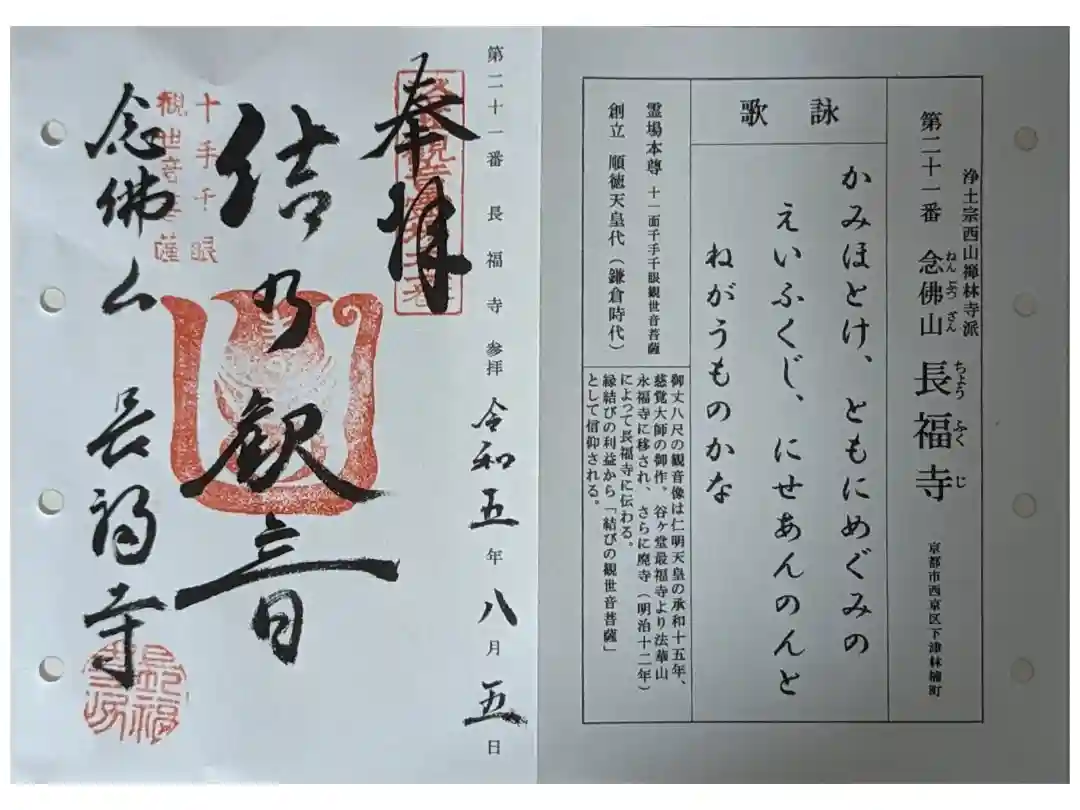 浄土宗西山禅林寺派
第二十一番 念佛山 長福寺 京都市西京区下津林楠町
ねんぶつざん
ちょうふくじ
詠歌
かみほとけ、ともにめぐみの
えいふくじ、にせあんのんと
ねがうものかな
霊場本尊 十一面千手千眼観世音菩薩
創立 順徳天皇代（鎌倉時代）
御丈八尺の観音像は仁明天皇の承和十五年、
慈覚大師の御作。谷ヶ堂最福寺より法華山
永福寺に移され、さらに廃寺（明治十二年）
によって長福寺に伝わる。
縁結びの利益から「結びの観世音菩薩」
として信仰される。
第二十一番 長福寺 参拝 令和五年八月五日
奉拝
結乃観音
十手千眼
観世音菩薩
念佛山 長福寺